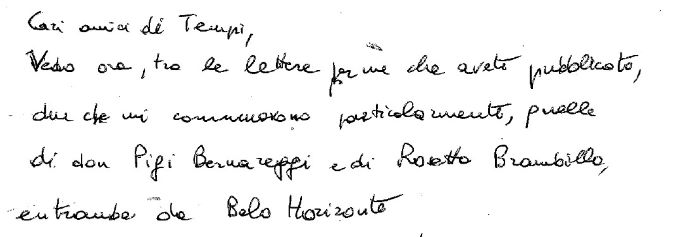 Cari amici di Tempi,
Vedo ora, tra le lettere per me che avete pubblicato,
due che mi commuovono particolarmente, quelle
di don Pigi Bernareggi e di Rosetta Brambilla,
entrambe da Belo Horizonte